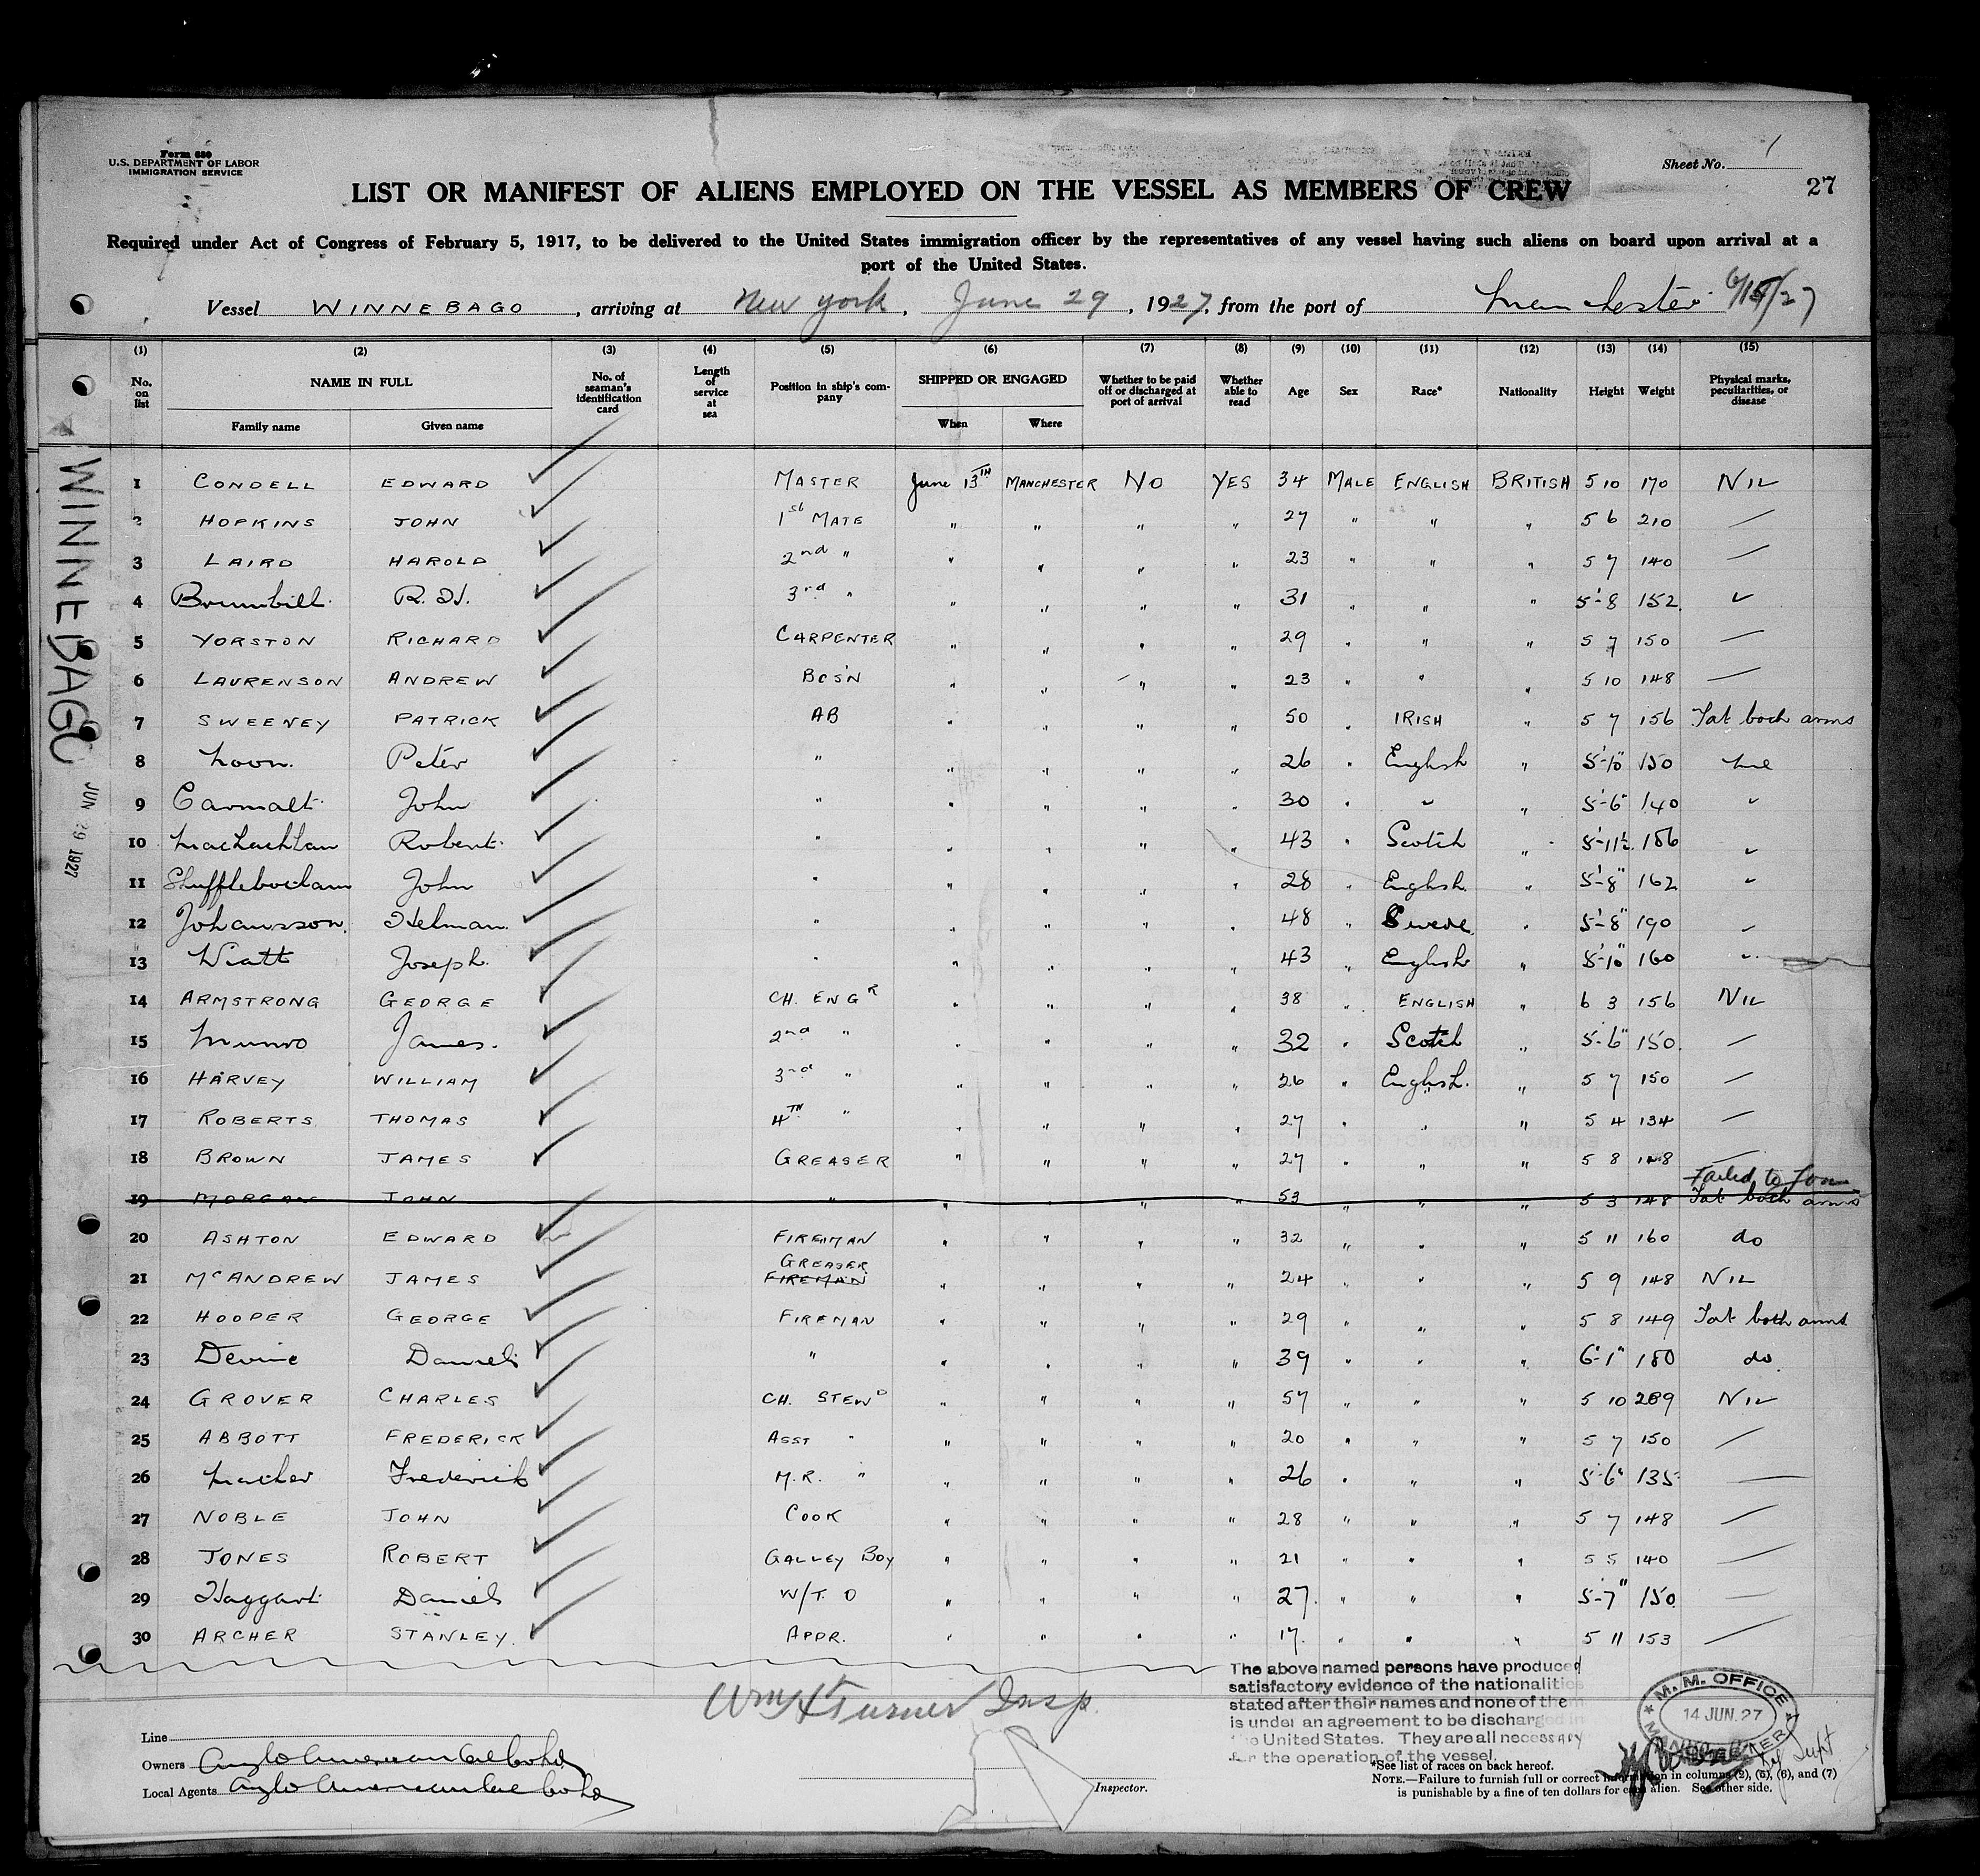 Form 680
U.S. DEPARTMENT OF LABOR
IMMIGRATION SERVICE
Sheet No. 1
LIST OR MANIFEST OF ALIENS EMPLOYED ON THE VESSEL AS MEMBERS OF CREW
27
Required under Act of Congress of February 5, 1917, to be delivered to the United States immigration officer by the representatives of any vessel having such aliens on board upon arrival at a
port of the United States.
Vessel WINNEBAGO, arriving at New York, June 29, 1927, from the port of Manchester 6/15/27
(1) (2) (3) (4) (5) (6) (7) (8) (9) (10) (11) (12) (13) (14) (15)
No. on list NAME IN FULL Family name Given name No. of seaman's identification card Length of service at sea Position in ship's company SHIPPED OR ENGAGED When Where Whether to be paid off or discharged at port of arrival Whether able to read Age Sex Race* Nationality Height Weight Physical marks, peculiarities, or disease
WINNEBAGO
JUN 29 1927
1 CONDELL EDWARD MASTER June 13TH MANCHESTER NO YES 34 MALE ENGLISH BRITISH 5 10 170 NIL
2 HOPKINS JOHN 1st MATE " " " " 27 " " " 5 6 210 —
3 LAIRD HAROLD 2nd " " " " " 23 " " " 5 7 140 —
4 Brumbill R. H. 3rd " " " " " 31 " " " 5'-8 152 "
5 YORSTON RICHARD CARPENTER " " " " 29 " " " 5 7 150 —
6 LAURENSON ANDREW BOSN " " " " 23 " " " 5 10 148 —
7 SWEENEY PATRICK AB " " " " 50 " IRISH " 5 7 156 Tat both arms
8 Moon. Peter " " " " " 26 " English " 5'-10" 150 nil
9 Carmalt John " " " " " 30 " " " 5'-6" 140 "
10 MacLachlan Robert " " " " " 43 " Scotch " 5'-11½ 186 "
11 Shufflebotham John " " " " " 28 " English " 5'-8" 162 "
12 Johansson Helman " " " " " 48 " Swede " 5'-8" 190 "
13 Wiatt Joseph " " " " " 43 " English " 5'-10" 160 "
14 ARMSTRONG GEORGE CH. ENGR " " " " 38 " ENGLISH " 6 3 156 NIL
15 Munro James. 2nd " " " " " 32 " Scotch " 5'-6" 150 —
16 HARVEY WILLIAM 3rd " " " " " 26 " English. " 5 7 150 —
17 ROBERTS THOMAS 4TH " " " " " 27 " " " 5 4 134 —
18 BROWN JAMES GREASER " " " " 27 " " " 5 8 148 —
Failed to Join
19 MORGAN JOHN " " " " " 53 " " " 5 3 148 Tat both arms
20 ASHTON EDWARD FIREMAN " " " " 32 " " " 5 11 160 do
GREASER
21 McANDREW JAMES FIREMAN " " " " 24 " " " 5 9 148 NIL
22 HOOPER GEORGE FIREMAN " " " " 29 " " " 5 8 149 Tat both arms
23 Devine Daniel " " " " " 39 " " " 6'-1" 180 do
24 GROVER CHARLES CH. STEWD " " " " 57 " " " 5 10 289 NIL
25 ABBOTT FREDERICK ASST " " " " " 20 " " " 5 7 150 —
26 Mather Frederick M.R. " " " " " 26 " " " 5'-6" 135 —
27 NOBLE JOHN COOK " " " " 28 " " " 5 7 148 —
28 JONES ROBERT GALLEY BOY " " " " 21 " " " 5 5 140 —
29 Haggart Daniel W/T. O " " " " 27. " " " 5-7" 150 —
30 ARCHER STANLEY. APPR. " " " " 17. " " " 5 11 153 —
The above named persons have produced
satisfactory evidence of the nationalities
stated after their names and none of them
is under an agreement to be discharged in
the United States. They are all necessary
for the operation of the vessel.
Wm H Turner Insp.
M. M. OFFICE
14 JUN. 27
MANCHESTER
Line
Owners Anglo American Oil Co Ld
Local Agents Anglo American Oil Co Ld
Inspector.
*See list of races on back hereof.
NOTE.—Failure to furnish full or correct information in columns (2), (5), (6), and (7)
is punishable by a fine of ten dollars for each alien. See other side.